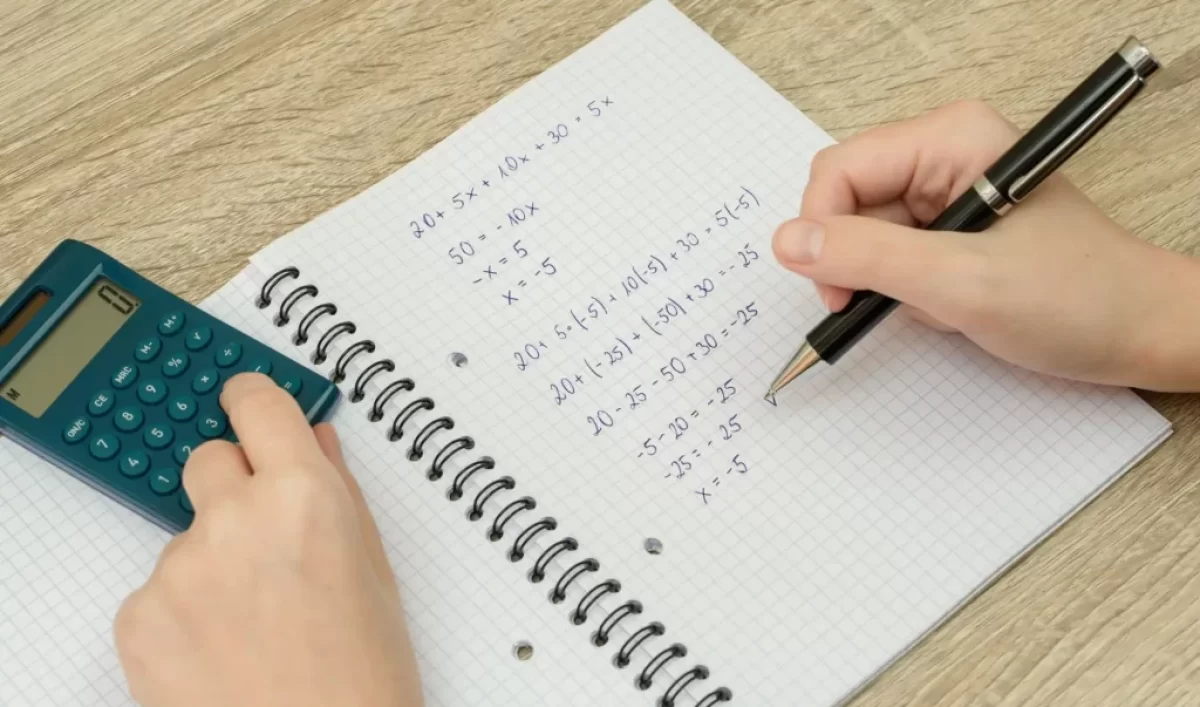 20 + 5x + 10x + 30 = 5x
50 = -10x
-x = 5
x = -5
20 + 5·(-5) + 10(-5) + 30 = 5(-5)
20 + (-25) + (-50) + 30 = -25
20 - 25 - 50 + 30 = -25
-5 - 20 = -25
-25 = -25
x = -5
M
M+
√
÷
M-
%
×
-
MRC
9
6
3
=
CE
8
5
2
ON/C
7
4
1